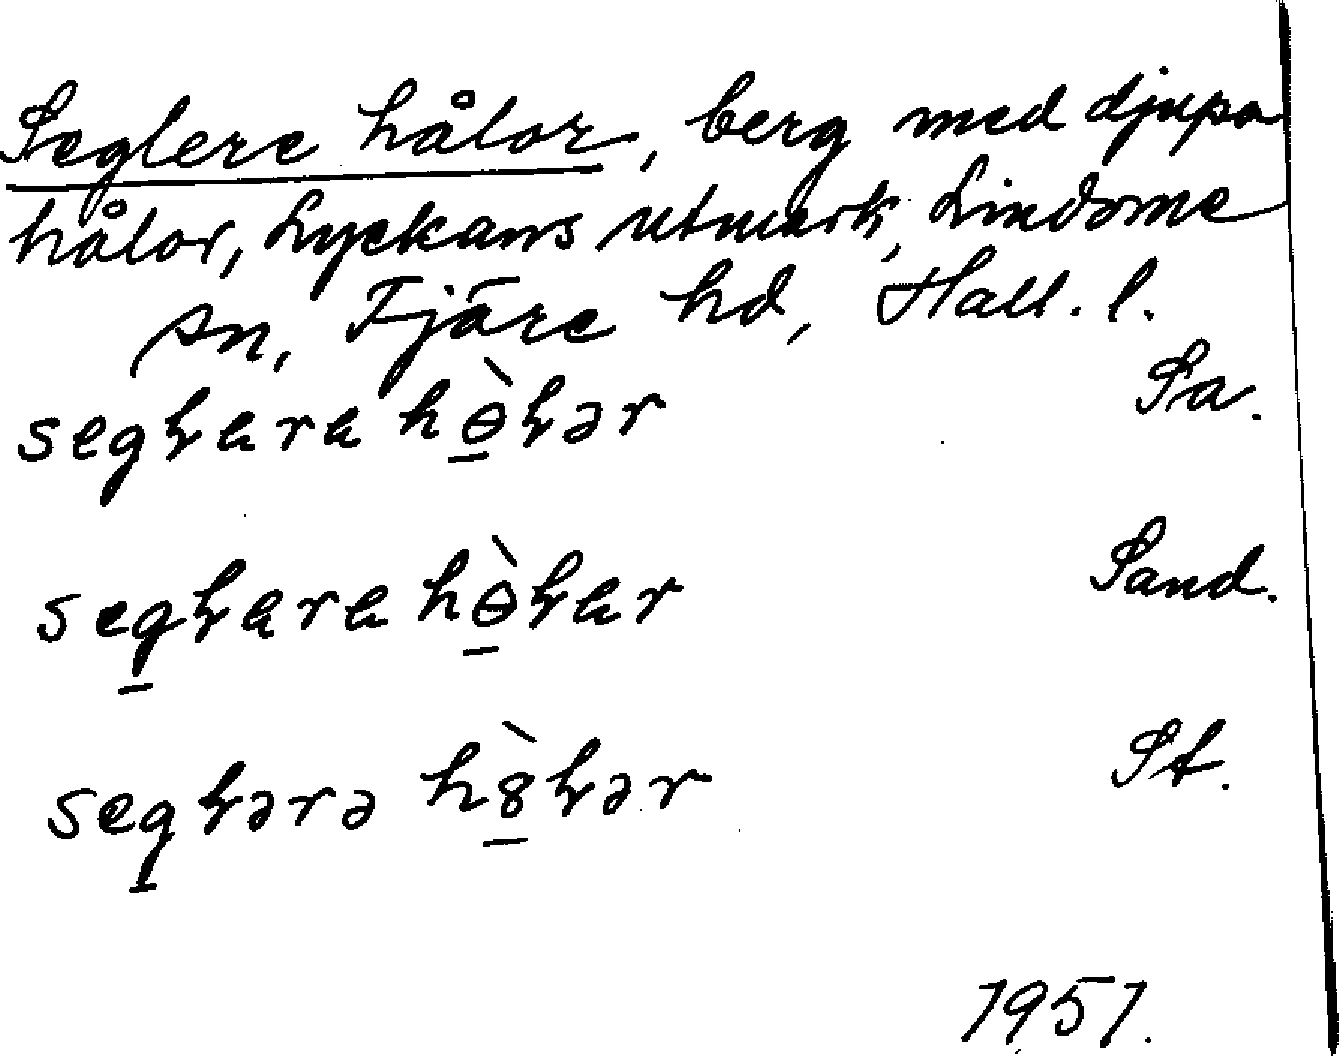 Seglere hålor, berg med djupa
hålor, Lyckans utmark, Lindome
sn, Fjäre hd, Hall. l.
segɫara hɵ̀ɫər Sa.
segɫara hɵ̀ɫar Sand.
segɫərə h8̀ɫər St.
1951.